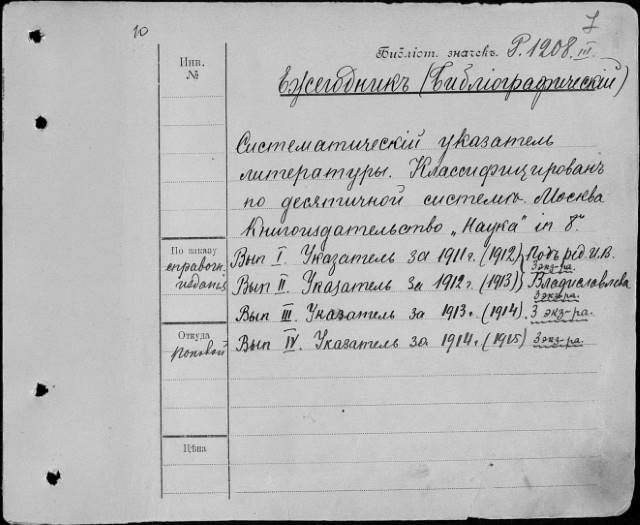 10
7
Библіот. значекъ. Р. 1208. III.
Инв.
№
Ежегодникъ (Библіографическій)
Систематическій указатель
литературы. Классифицированъ
по десятичной системѣ. Москва
Книгоиздательство „Наука" in 8°
По заказу
справочн.
изданія
Вып I. Указатель за 1911 г. (1912) Подъ ред. И.В.
3 экз-ра.
Вып II. Указатель за 1912 г. (1913) Владиславлева
3 экз-ра.
Вып III. Указатель за 1913 г. (1914). 3 экз-ра.
Откуда
Вып IV. Указатель за 1914 г. (1915) 3 экз-ра.
Цѣна